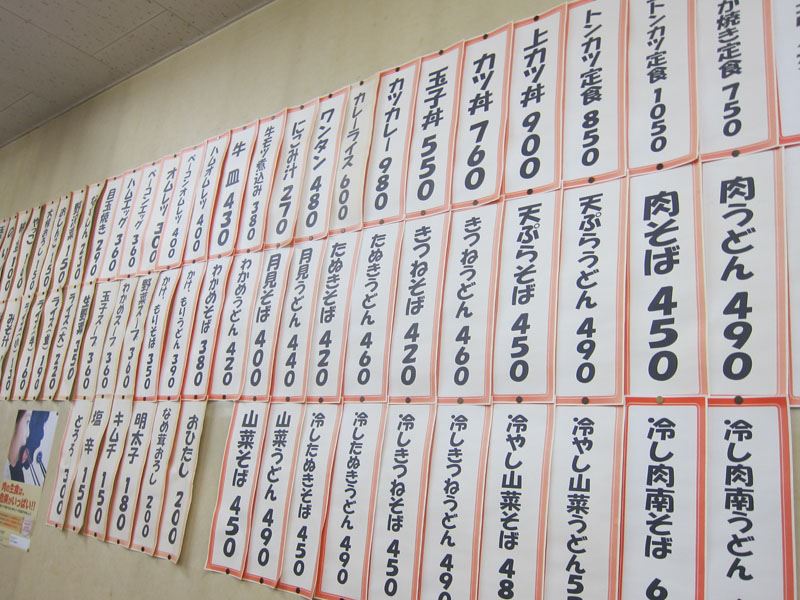 焼き定食 750
トンカツ定食 1050
トンカツ定食 850
上カツ丼 900
カツ丼 760
玉子丼 550
カツカレー 980
カレーライス 600
ワンタン 480
にこみ汁 270
牛モツ煮込み 380
牛皿 430
ハムオムレツ 400
ベーコンオムレツ 400
オムレツ 300
ベーコンエッグ 360
ハムエッグ 360
目玉焼き 290
肉うどん 490
肉そば 450
天ぷらうどん 490
天ぷらそば 450
きつねうどん 460
きつねそば 420
たぬきうどん 460
たぬきそば 420
月見うどん 440
月見そば 400
わかめうどん 420
わかめそば 380
かけ、もりうどん 390
かけ、もりそば 350
野菜スープ 360
わかめスープ 360
玉子スープ 360
生野菜 350
ライス(大) 220
みそ汁
冷し肉南うどん
冷し肉南そば 6
冷やし山菜うどん 5
冷やし山菜そば 48
冷しきつねうどん 490
冷しきつねそば 450
冷したぬきうどん 490
冷したぬきそば 450
山菜うどん 490
山菜そば 450
おひたし 200
なめ茸おろし 200
明太子 180
キムチ 150
塩辛 150
とろろ 300